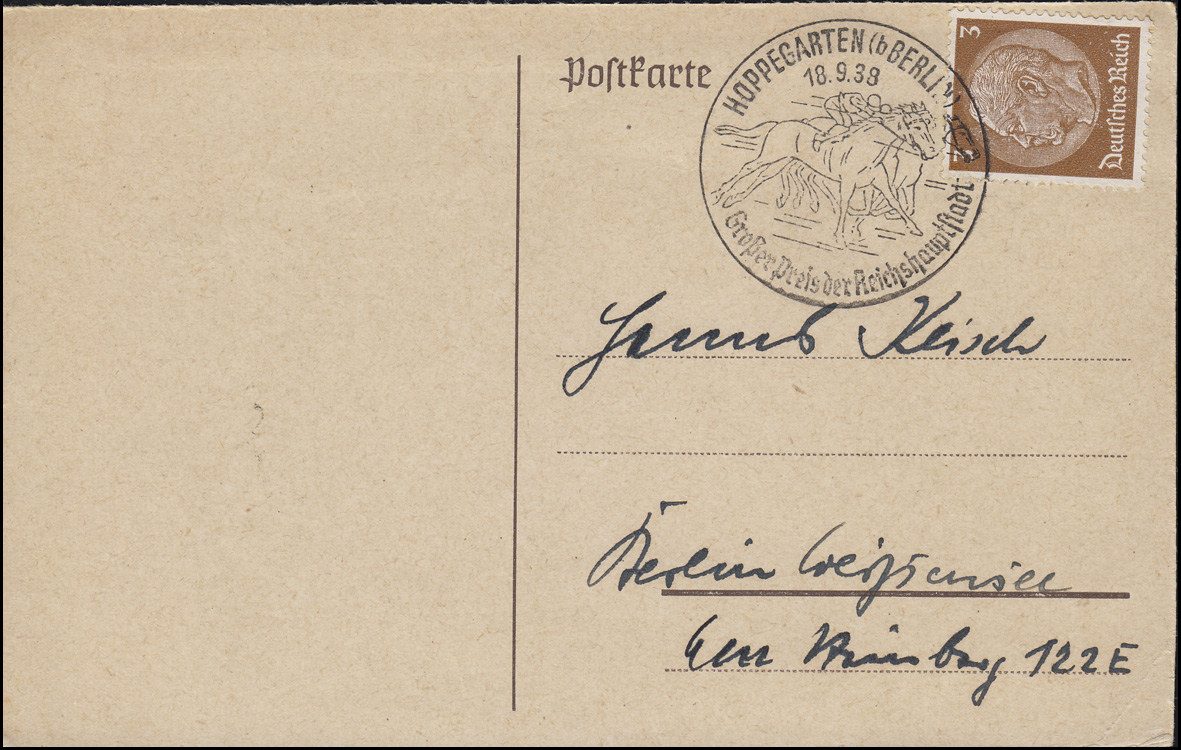 Postkarte
HOPPEGARTEN (b BERLIN)
18.9.38
Großer Preis der Reichshauptstadt
3
3
Deutsches Reich
Kleisch
Berlin Weißensee
122E